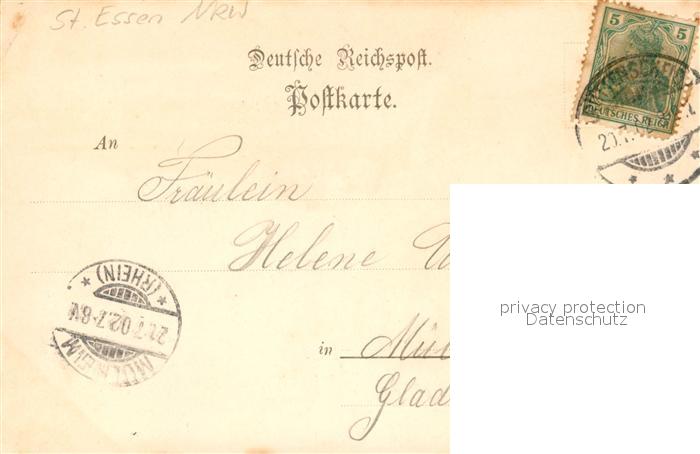 St. Essen NRW
Deutsche Reichspost.
Postkarte.
5 5
DEUTSCHES REICH
An
Fräulein
Helene
in
Glad
MÜLHEIM
21.7.02.7-8V
(RHEIN)
privacy protection
Datenschutz